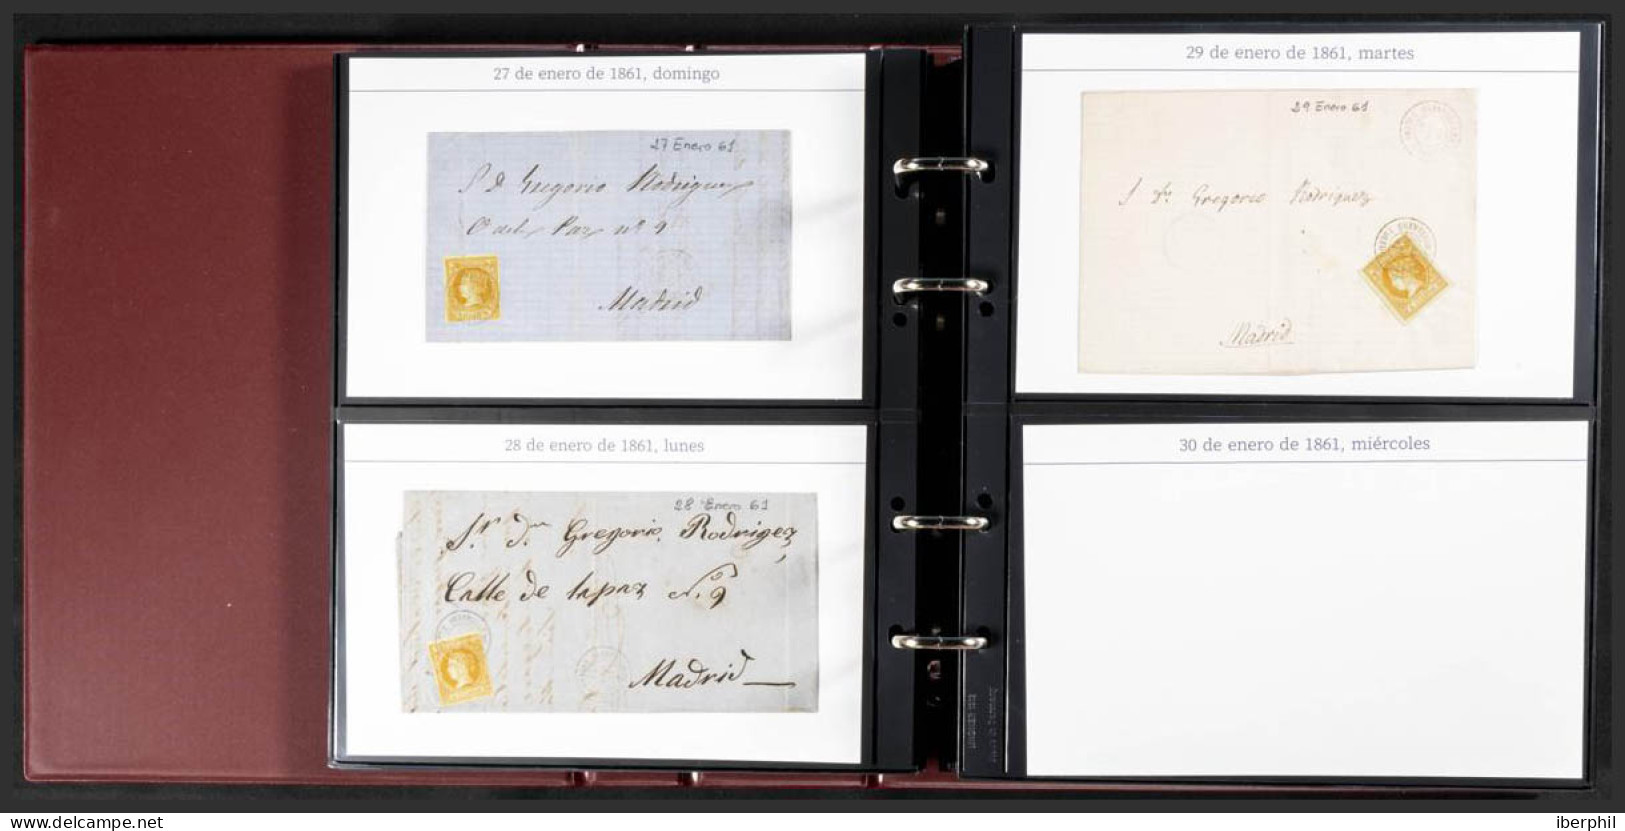 27 de enero de 1861, domingo
27 Enero 61
S D Gregorio Rodriguez
Calle Paz nº 9
Madrid
28 de enero de 1861, lunes
28 Enero 61
Sr. Dn Gregorio Rodrigez
Calle de la paz N. 9
Madrid
29 de enero de 1861, martes
29 Enero 61
S Dn Gregorio Rodriguez
Madrid
30 de enero de 1861, miércoles
www.delcampe.net
iberphil